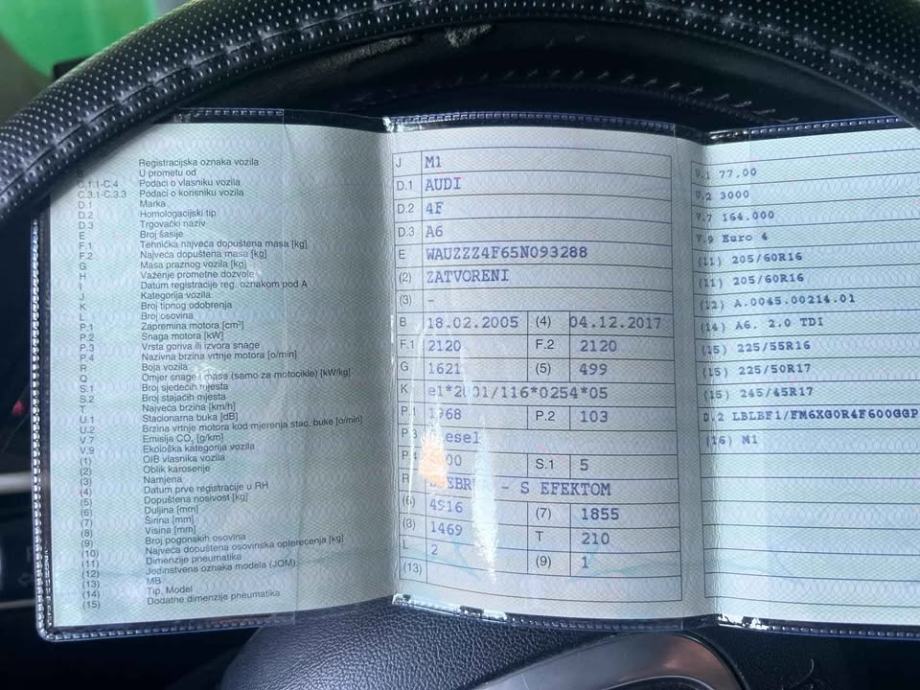 Registracijska oznaka vozila
U prometu od
C.1.1-C.4 Podaci o vlasniku vozila
C.3.1-C.3.3 Podaci o korisniku vozila
D.1 Marka
D.2 Homologacijski tip
D.3 Trgovački naziv
E Broj šasije
F.1 Tehnička najveća dopuštena masa [kg]
F.2 Najveća dopuštena masa [kg]
G Masa praznog vozila [kg]
H Važenje prometne dozvole
I Datum registracije reg. oznakom pod A
J Kategorija vozila
K Broj tipnog odobrenja
L Broj osovina
P.1 Zapremina motora [cm³]
P.2 Snaga motora [kW]
P.3 Vrsta goriva ili izvora snage
P.4 Nazivna brzina vrtnje motora [o/min]
R Boja vozila
Q Omjer snage i masa (samo za motocikle) [kW/kg]
S.1 Broj sjedećih mjesta
S.2 Broj stajaćih mjesta
T Najveća brzina [km/h]
U.1 Stacionarna buka [dB]
U.2 Brzina vrtnje motora kod mjerenja stac. buke [o/min]
V.7 Emisija CO₂ [g/km]
V.9 Ekološka kategorija vozila
(1) OIB vlasnika vozila
(2) Oblik karoserije
(3) Namjena
(4) Datum prve registracije u RH
(5) Dopuštena nosivost [kg]
(6) Duljina [mm]
(7) Širina [mm]
(8) Visina [mm]
(9) Broj pogonskih osovina
(10) Najveća dopuštena osovinska opterećenja [kg]
(11) Dimenzije pneumatika
(12) Jedinstvena oznaka modela (JOM)
(13) MB
(14) Tip, Model
(15) Dodatne dimenzije pneumatika
J M1
D.1 AUDI
D.2 4F
D.3 A6
E WAUZZZ4F65N093288
(2) ZATVORENI
(3) -
B 18.02.2005 (4) 04.12.2017
F.1 2120 F.2 2120
G 1621 (5) 499
K e1*2001/116*0254*05
P.1 1968 P.2 103
S.1 5
R - S EFEKTOM
(6) 4916 (7) 1855
(8) 1469 T 210
L 2 (9) 1
(13)
U.1 77.00
U.2 3000
V.7 164.000
V.9 Euro 4
(11) 205/60R16
(11) 205/60R16
(12) A.0045.00214.01
(14) A6. 2.0 TDI
(15) 225/55R16
(15) 225/50R17
(15) 245/45R17
D.2 LBLBF1/FM6XG0R4F600GGP
(16) M1